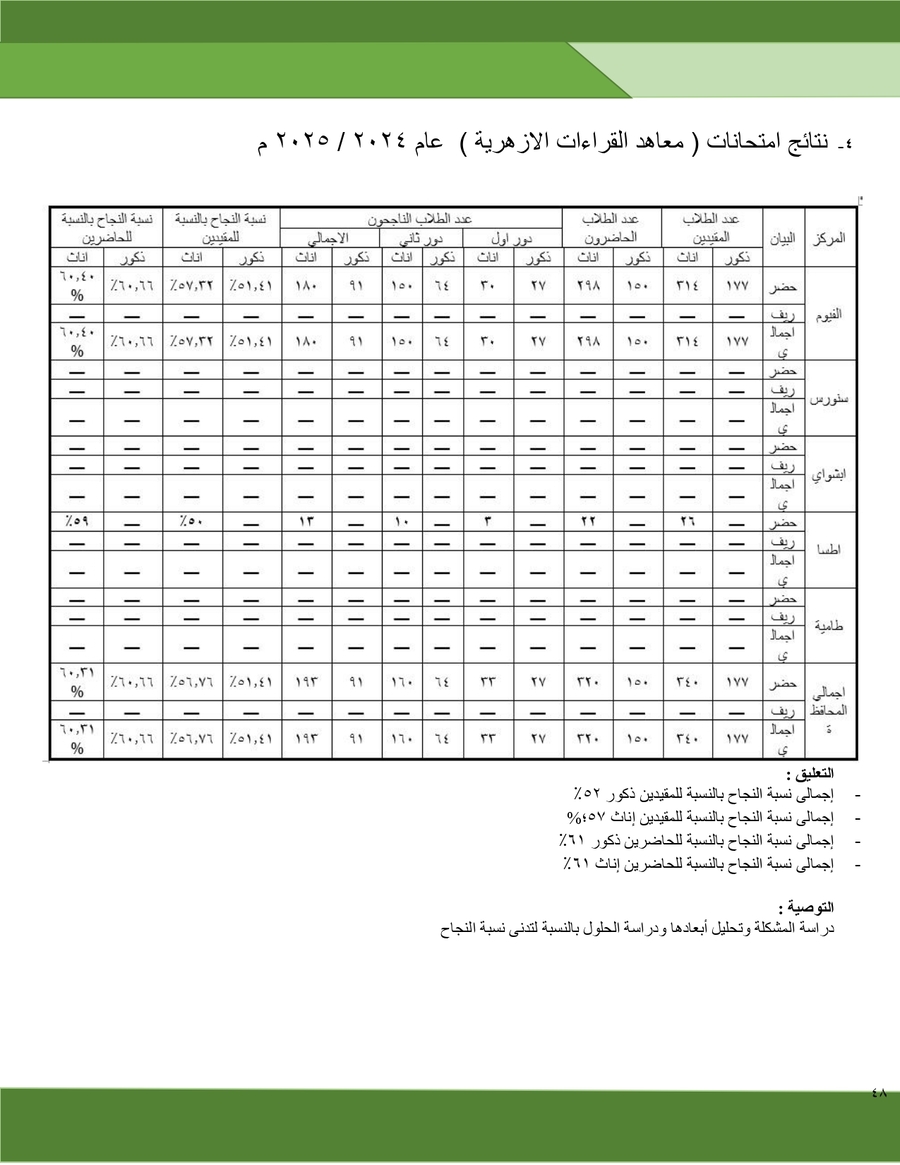 ٤- نتائج امتحانات ( معاهد القراءات الازهرية ) عام ٢٠٢٤ / ٢٠٢٥ م
المركز البيان عدد الطلاب المقيدين عدد الطلاب الحاضرون عدد الطلاب الناجحون نسبة النجاح بالنسبة للمقيدين نسبة النجاح بالنسبة للحاضرين
دور اول دور ثاني الاجمالي
ذكور اناث ذكور اناث ذكور اناث ذكور اناث ذكور اناث ذكور اناث ذكور اناث
الفيوم حضر ١٧٧ ٣١٤ ١٥٠ ٢٩٨ ٢٧ ٣٠ ٦٤ ١٥٠ ٩١ ١٨٠ ٥١,٤١٪ ٥٧,٣٢٪ ٦٠,٦٦٪ ٦٠,٤٠%
ريف — — — — — — — — — — — — — —
اجمالي ١٧٧ ٣١٤ ١٥٠ ٢٩٨ ٢٧ ٣٠ ٦٤ ١٥٠ ٩١ ١٨٠ ٥١,٤١٪ ٥٧,٣٢٪ ٦٠,٦٦٪ ٦٠,٤٠%
سنورس حضر — — — — — — — — — — — — — —
ريف — — — — — — — — — — — — — —
اجمالي — — — — — — — — — — — — — —
ابشواي حضر — — — — — — — — — — — — — —
ريف — — — — — — — — — — — — — —
اجمالي — — — — — — — — — — — — — —
اطسا حضر — ٢٦ — ٢٢ — ٣ — ١٠ — ١٣ — ٥٠٪ — ٥٩٪
ريف — — — — — — — — — — — — — —
اجمالي — — — — — — — — — — — — — —
طامية حضر — — — — — — — — — — — — — —
ريف — — — — — — — — — — — — — —
اجمالي — — — — — — — — — — — — — —
اجمالي المحافظة حضر ١٧٧ ٣٤٠ ١٥٠ ٣٢٠ ٢٧ ٣٣ ٦٤ ١٦٠ ٩١ ١٩٣ ٥١,٤١٪ ٥٦,٧٦٪ ٦٠,٦٦٪ ٦٠,٣١%
ريف — — — — — — — — — — — — — —
اجمالي ١٧٧ ٣٤٠ ١٥٠ ٣٢٠ ٢٧ ٣٣ ٦٤ ١٦٠ ٩١ ١٩٣ ٥١,٤١٪ ٥٦,٧٦٪ ٦٠,٦٦٪ ٦٠,٣١%
التعليق :
- إجمالى نسبة النجاح بالنسبة للمقيدين ذكور ٥٢٪
- إجمالى نسبة النجاح بالنسبة للمقيدين إناث ٥٧؛%
- إجمالى نسبة النجاح بالنسبة للحاضرين ذكور ٦١٪
- إجمالى نسبة النجاح بالنسبة للحاضرين إناث ٦١٪
التوصية :
دراسة المشكلة وتحليل أبعادها ودراسة الحلول بالنسبة لتدنى نسبة النجاح
٤٨